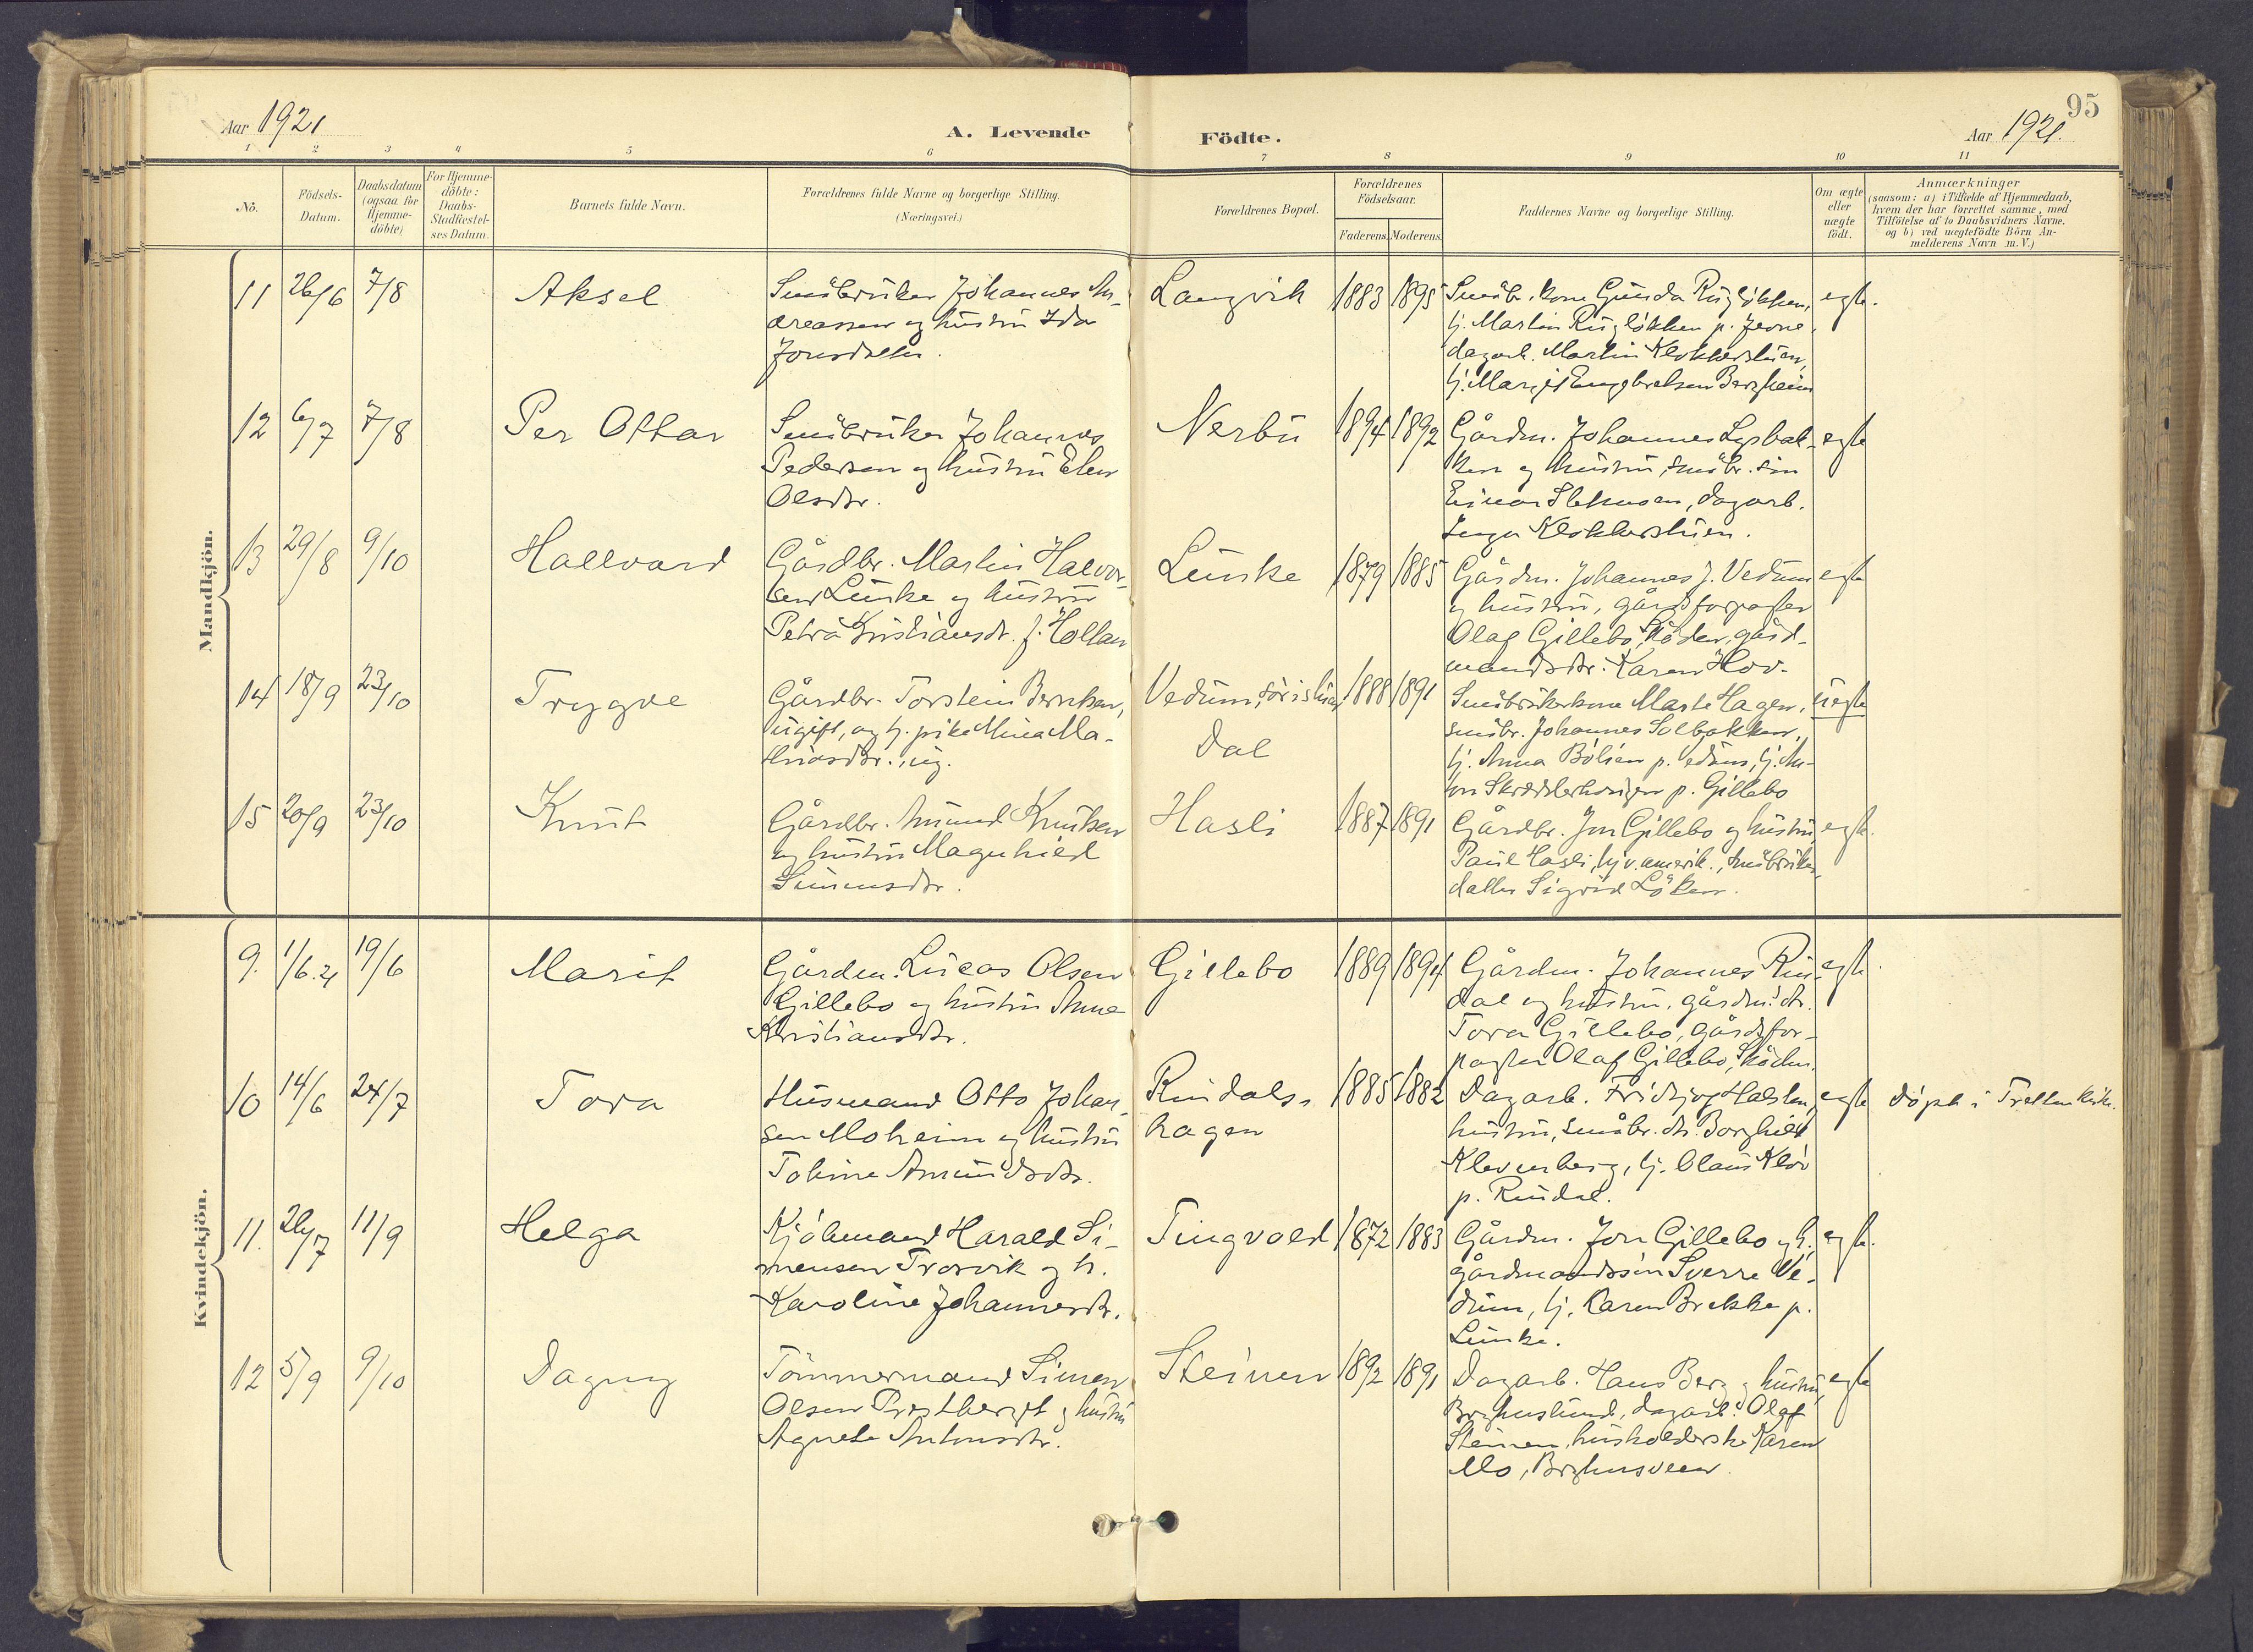 95
Aar 1921
A. Levende
Födte.
Aar 1921.
1 2 3 4 5 6 7 8 9 10 11
No.
Födsels-
Datum.
Daabsdatum
(ogsaa for
Hjemme-
döbte)
For Hjemme-
döbte:
Daabs-
Stadfæstel-
ses Datum.
Barnets fulde Navn.
Forældrenes fulde Navne og borgerlige Stilling.
(Næringsvei.)
Forældrenes Bopæl.
Forældrenes
Födselsaar.
Faderens. Moderens.
Faddernes Navne og borgerlige Stilling.
Om ægte
eller
uægte
födt.
Anmærkninger
(saasom: a) i Tilfælde af Hjemmedaab,
hvem der har forrettet samme, med
Tilföielse af to Daabsvidners Navne.
og b) ved uægtefödte Börn An-
melderens Navn m. V.)
Mandkjön.
11 26/6 7/8 Aksel
Småbruker Johannes An-
dreassen og hustru Ida
Jonsdatter.
Langvik 1883 1895
Småbr. kone Gunda Rugløkken,
tj. Martin Rugløkken p.
dagarb. Martin Klokkerstuen,
tj. Marit Engebretsen Bergheim
egte.
12 6/7 7/8 Per Ottar
Småbruker Johannes
Pedersen og hustru Elen
Olsdtr.
Nerbu 1894 1892
Gårdm. Johannes Lysbak-
ken og hustru, småbr. søn
Einar Stehusen, dagarb.
Inga Klokkerstuen.
egte
13 29/8 9/10 Hallvard
Gårdbr. Martin Halvor-
sen Lunke og hustru
Petra Kristiansdr. f. Holtan
Lunke 1879 1885
Gårdm. Johannes J. Vedum
og hustru, gårdsforpagter
Olaf Gillebo, Skåden, gård-
mandsdtr. Karen Hov.
egte
14 18/9 23/10 Trygve
Gårdbr. Torstein Berntsen,
ugift, og tj. pike Mina Ma-
thiasdtr. ug.
Vedum, før i
Dal
1888 1891
Småbrukerkone Marte Hagen,
småbr. Johannes Solbakken,
tj. Anna Bölien p. Vedum, tj. An-
ton Skrædderhaugen p. Gillebo
uegte
15 20/9 23/10 Knut
Gårdbr. Amund Knutsen
og hustru Magnhild
Simensdtr.
Hasli 1887 1891
Gårdbr. Jon Gillebo og hustru,
Paul Hasli, hjv. amerik., småbruker-
datter Sigrid Löken.
egte.
Kvindekjön.
9. 1/6.21 19/6 Marit
Gårdm. Lucas Olsen
Gillebo og hustru Anna
Kristiansdtr.
Gillebo 1889 1894
Gårdm. Johannes Rin-
dal og hustru, gårdm. dtr.
Tora Gillebo, gårdsfor-
pagter Olaf Gillebo, Skåden.
egte.
10 14/6 24/7 Tora
Husmand Otto Johan-
sen Moheim og hustru
Tomine Amundsdtr.
Rindals-
hagen
1885 1882
Dagarb. Fridtjog Halsten,
hustru, småbr. dtr. Borghild
Klevenberg, tj. Olaus Klöv
p. Rindal.
egte
Döpt i Tretten kirke.
11. 26/7 11/9 Helga
Kjöbmand Harald Si-
mensen Trosvik og h.
Karoline Johannesdtr.
Tingvold 1872 1883
Gårdm. Jon Gillebo og h.,
gårdmandssøn Sverre Ve-
dum, tj. Karen Brekke p.
Lunke.
egte.
12 5/9 9/10 Dagny
Tömmermand Simen
Olsen Prestberget og hustru
Agnete Antonsdtr.
Steinen 1892 1891
Dagarb. Hans Berg og hustru,
dagarb. Olaf
Steinen, husholderske Karen
Mo,
egte